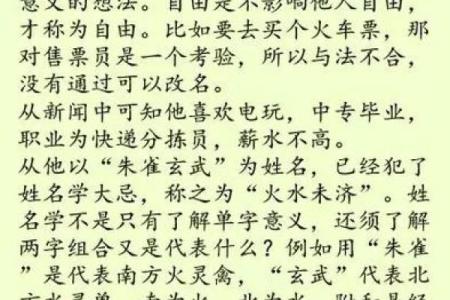 意义的想法。自由是不影响他人自由，
才称为自由。比如要去买个火车票，那
对售票员是一个考验，所以与法不合，
没有通过可以改名。
从新闻中可知他喜欢电玩，中专毕业，
职业为快递分拣员，薪水不高。
从他以“朱雀玄武”为姓名，已经犯了
姓名学大忌，称之为“火水未济”。姓
名学不是只有了解单字意义，还须了解
两字组合又是代表什么？例如用“朱雀
”是代表南方火灵禽，“玄武”代表北